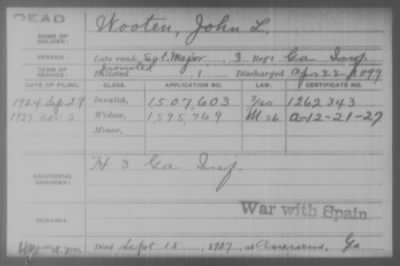 DEAD
NAME OF SOLDIER: Wooten, John L.
SERVICE: Late rank, Sgt. Major, 3 Regt Ga Inf.
TERM OF SERVICE: Enlisted , 1 Discharged Apr 22, 1899
DATE OF FILING. CLASS. APPLICATION NO. LAW. CERTIFICATE NO.
1924 Sep 29 Invalid, 1507,603 1262343
1927 Nov 3 Widow, 1595,769 A-12-21-27
Minor,
ADDITIONAL SERVICES: H 3 Ga Inf.
REMARKS: War with Spain
Died Sept 15, 1927, at Americus, Ga